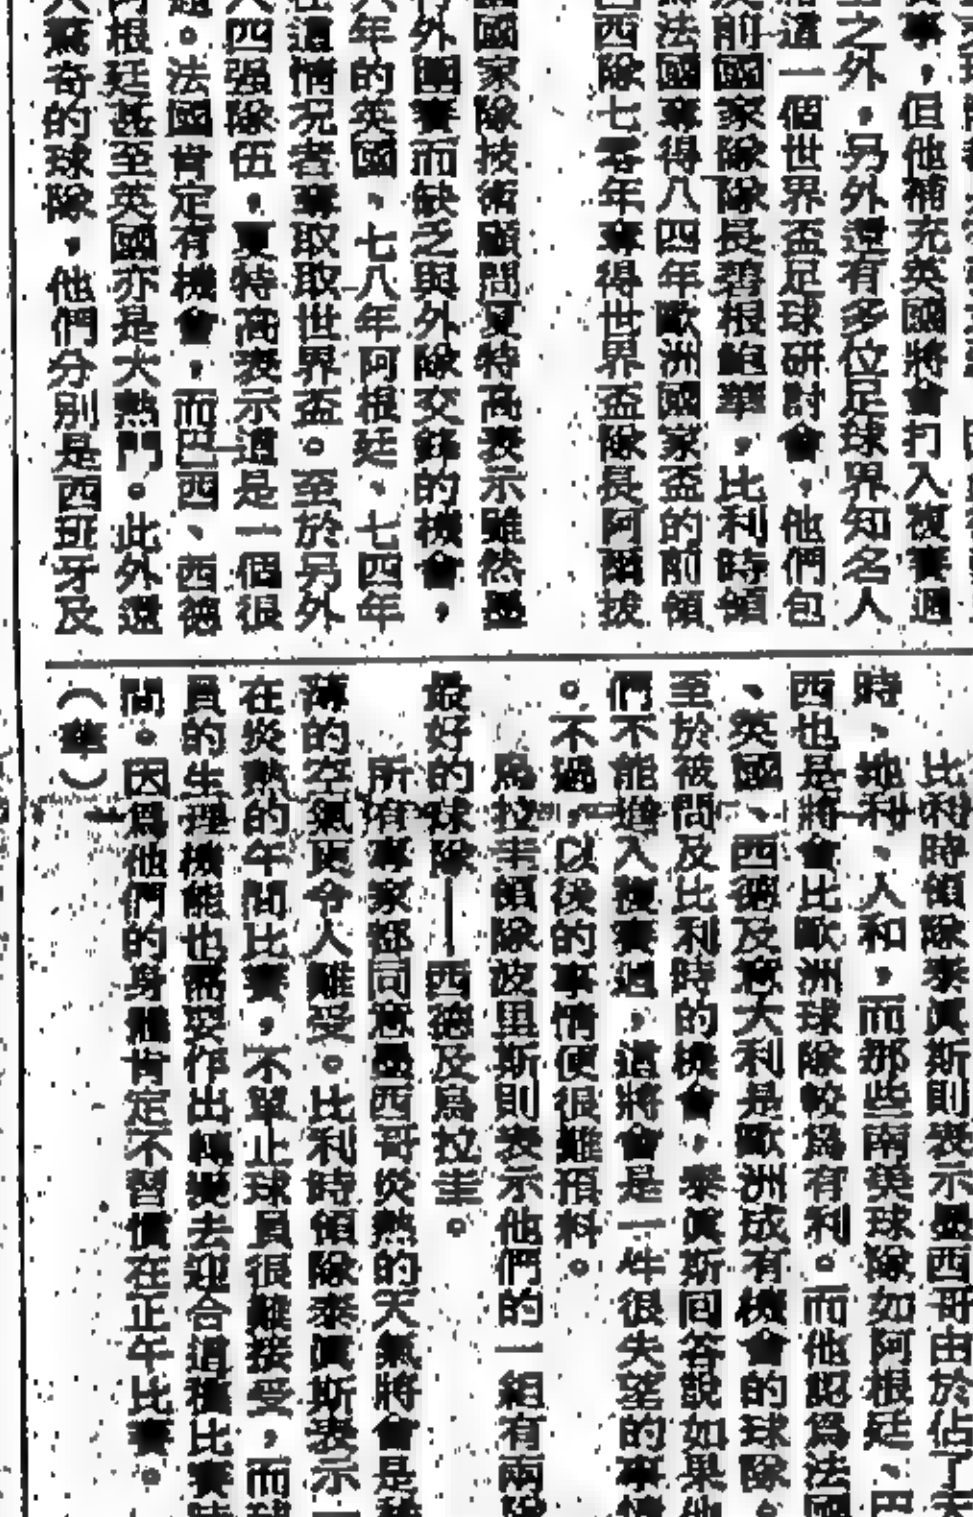 事，但他補充英國將會打入複賽週
之外，另外還有多位足球界知名人
道一個世界盃足球研討會，他們包
前國家隊隊長潛根鮑華，比利時領
法國奪得八四年歐洲國家盃的前領
西隊七零年奪得世界盃隊長阿爾拔
國家隊技術顧問夏特高表示雖然墨
外圍賽而缺乏與外隊交鋒的機會，
年的英國、七八年阿根廷、七四年
這情況者奪取取世界盃。至於另外
四强隊伍，夏特高表示這是一個很
。法國肯定有機會，而巴西、西德
根廷甚至英國亦是大熱門。此外還
驚奇的球隊，他們分別是西班牙及
比利時領隊泰眞斯則表示墨西哥由於佔了天
時、地利、人和，而那些南美球隊如阿根廷、巴
西也是將會比歐洲球隊較爲有利。而他認爲法國
、英國、西德及意大利是歐洲成有機會的球隊。
至於被問及比利時的機會，泰眞斯回答說如果他
們不能進入複賽週，這將會是一件很失望的事情
。不過，以後的事情便很難預料。
烏拉圭領隊波里斯則表示他們的一組有兩隊
最好的球隊——西德及烏拉圭。
所有專家都同意墨西哥炎熱的天氣將會是
薄的空氣更令人難受。比利時領隊泰眞斯表示一
在炎熱的午間比賽，不單止球員很難接受，而球
員的生理機能也需要作出轉變去迎合這種比賽時
間。因爲他們的身體肯定不習慣在正午比賽。
（華）